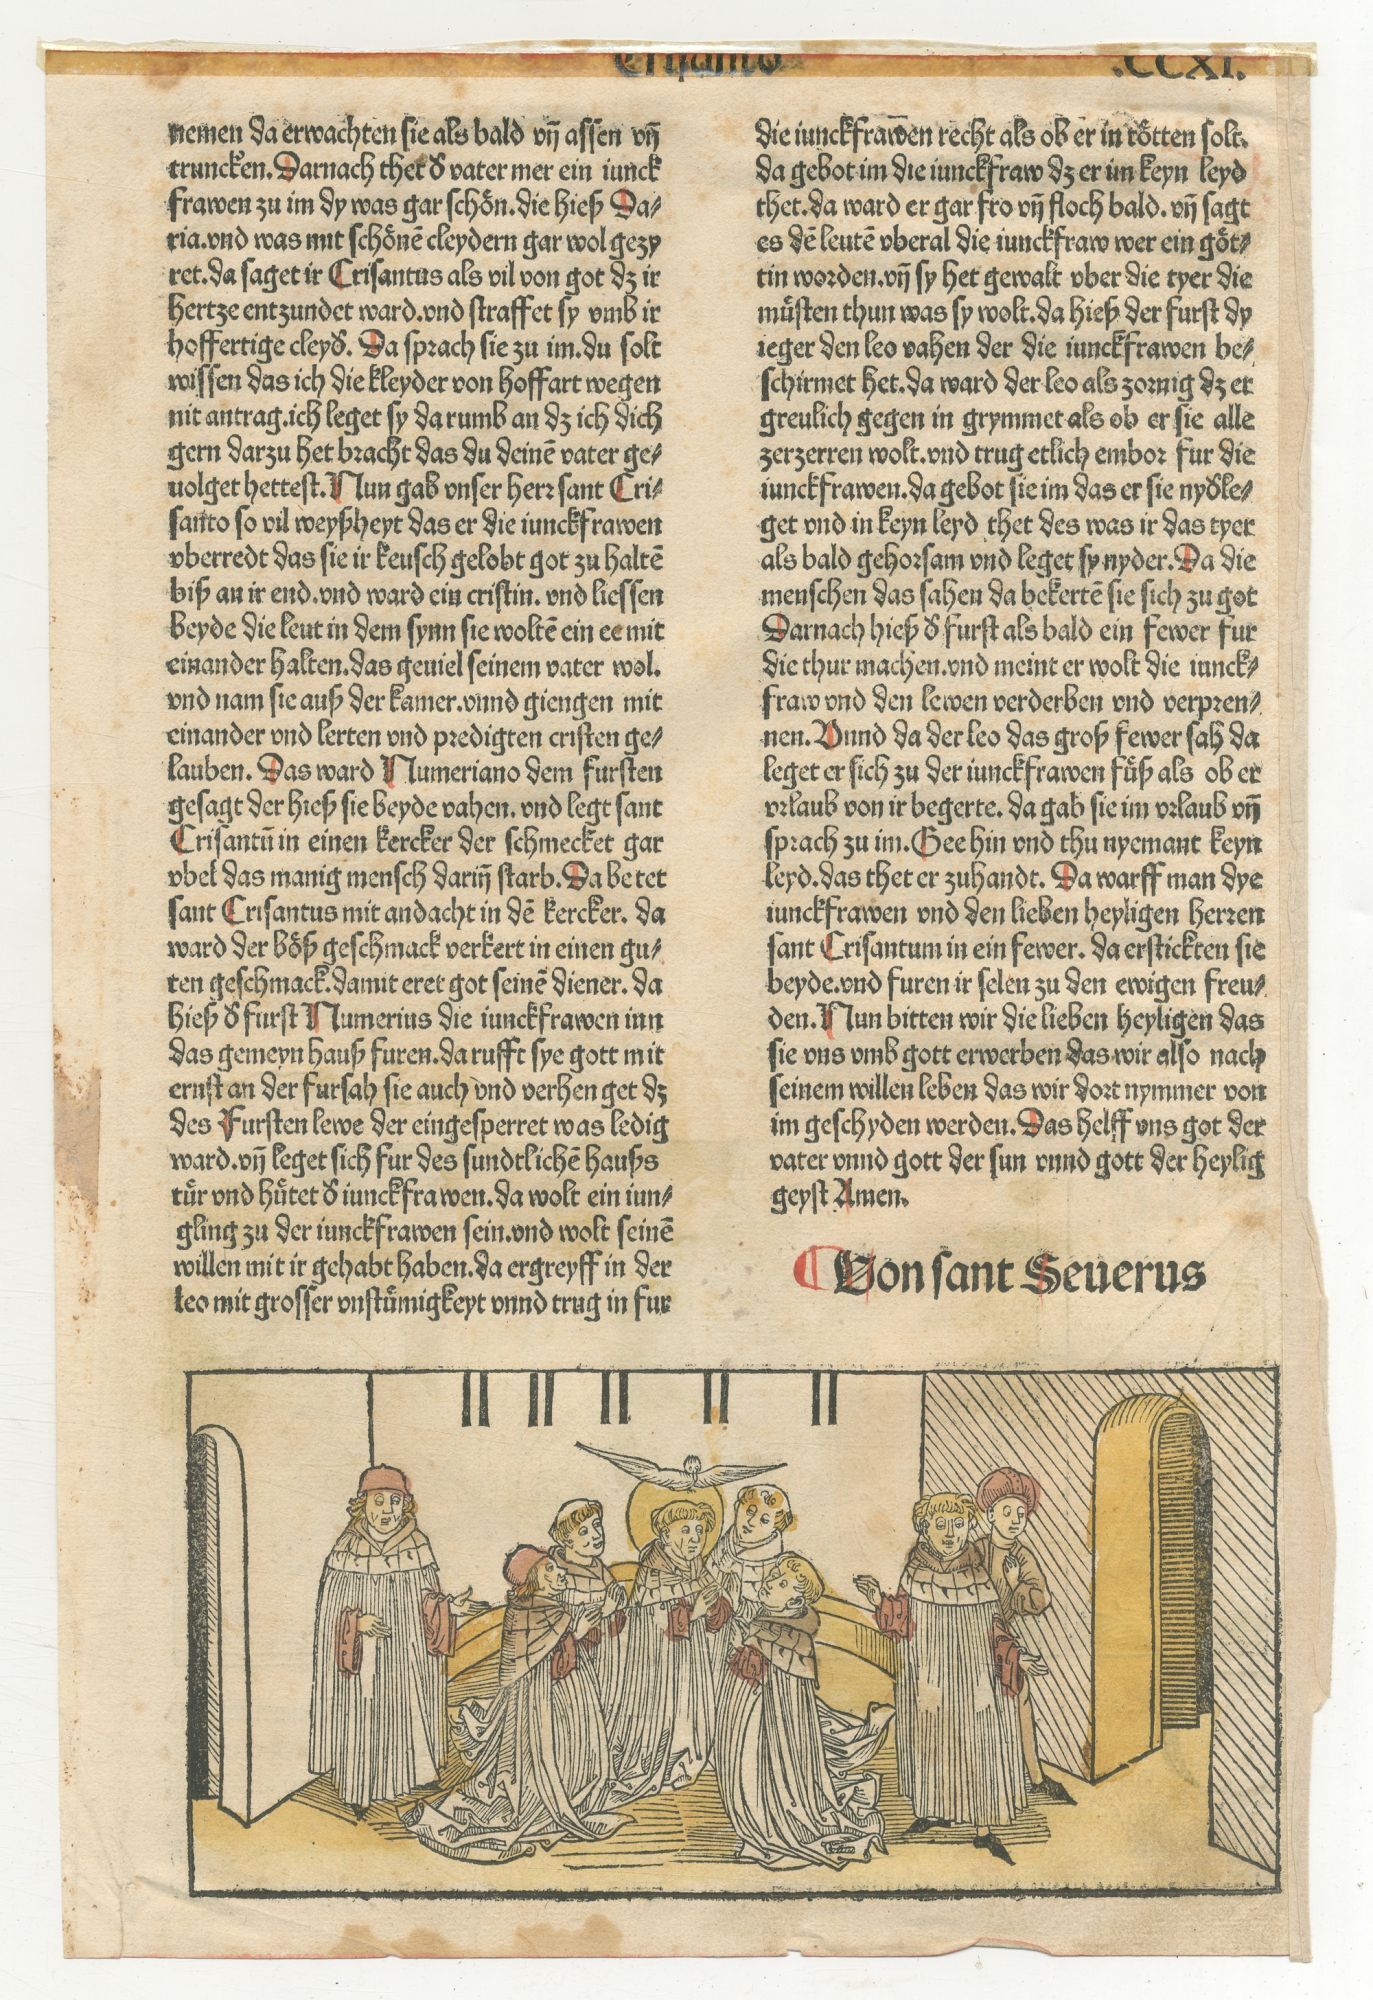 Crisanto
.CCXI.
nemen da erwachten sie als bald vñ assen vñ
truncken. Darnach thet d̕ vater mer ein iunck
frawen zu im dy was gar schön. die hieß Da⸗
ria. vnd was mit schönē cleydern gar wol gezy
ret. da saget ir Crisantus als vil von got dz ir
hertze entzundet ward. vnd straffet sy vmb ir
hoffertige cleyd̕. Da sprach sie zu im. du solt
wissen das ich die kleyder von hoffart wegen
nit antrag. ich leget sy darumb an dz ich dich
gern darzu het bracht das du deinē vater ge⸗
uolget hettest. Nun gab vnser herr sant Cri⸗
santo so vil weyßheyt das er die iunckfrawen
vberredt das sie ir keusch gelobt got zu haltē
biß an ir end. vnd ward ein cristin. vnd liessen
beyde die leut in dem synn sie woltē ein ee mit
einander halten. das geuiel seinem vater wol.
vnd nam sie auß der kamer. vnnd giengen mit
einander vnd lerten vnd predigten cristen ge⸗
lauben. Das ward Numeriano dem fursten
gesagt der hieß sie beyde vahen. vnd legt sant
Crisantū in einen kercker der schmecket gar
vbel das manig mensch dariñ starb. Da betet
sant Crisantus mit andacht in dē kercker. da
ward der böß geschmack verkert in einen gu⸗
ten geschmack. damit eret got seinē diener. da
hieß d̕ furst Numerius die iunckfrawen inn
das gemeyn hauß furen. da rufft sye gott mit
ernst an der fursah sie auch vnd verhenget dz
des Fursten lewe der eingesperret was ledig
ward. vñ leget sich fur des sundtlichē haußs
tür vnd hütet d̕ iunckfrawen. da wolt ein iun⸗
gling zu der iunckfrawen sein. vnd wolt seinē
willen mit ir gehabt haben. da ergreyff in der
leo mit grosser vnstümigkeyt vnnd trug in fur
die iunckfrawen recht als ob er in tötten solt.
da gebot im die iunckfraw dz er im keyn leyd
thet. da ward er gar fro vñ floch bald. vñ sagt
es dē leutē vberal die iunckfraw wer ein göt⸗
tin worden. vñ sy het gewalt vber die tyer die
müsten thun was sy wolt. da hieß der furst dy
ieger den leo vahen der die iunckfrawen be⸗
schirmet het. da ward der leo als zornig dz er
greulich gegen in grymmet als ob er sie alle
zerzerren wolt. vnd trug etlich embor fur die
iunckfrawen. da gebot sie im das er sie nyd̕le⸗
get vnd in keyn leyd thet des was ir das tyer
als bald gehorsam vnd leget sy nyder. Da die
menschen das sahen da bekertē sie sich zu got
Darnach hieß d̕ furst als bald ein fewer fur
die thur machen. vnd meint er wolt die iunck⸗
fraw vnd den lewen verderben vnd verpren⸗
nen. Vnnd da der leo das groß fewer sah da
leget er sich zu der iunckfrawen füß als ob er
vrlaub von ir begerte. da gab sie im vrlaub vñ
sprach zu im. Gee hin vnd thu nyemant keyn
leyd. das thet er zuhandt. Da warff man dye
iunckfrawen vnd den lieben heyligen herren
sant Crisantum in ein fewer. da erstickten sie
beyde. vnd furen ir selen zu den ewigen freu⸗
den. Nun bitten wir die lieben heyligen das
sie vns vmb gott erwerben das wir also nach
seinem willen leben das wir dort nymmer von
im geschyden werden. Das helff vns got der
vater vnnd gott der sun vnnd gott der heylig
geyst Amen.
Von sant Seuerus